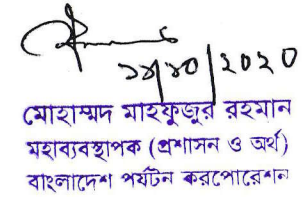 মোহাম্মদ মাহফুজুর রহমান
মহাব্যবস্থাপক (প্রশাসন ও অর্থ)
বাংলাদেশ পর্যটন করপোরেশন